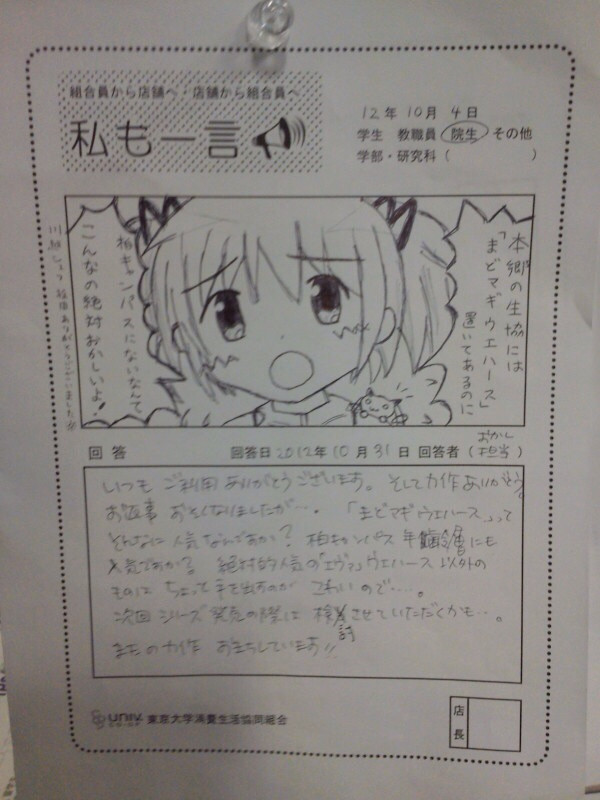 組合員から店舗へ・店舗から組合員へ
私も一言
12年 10月 4日
学生 教職員 院生 その他
学部・研究科（ ）
本郷の生協には
「まどマギウエハース」
置いてあるのに
柏キャンパスにないなんて
こんなの絶対おかしいよ！
ありがとうございました
回答 回答日 2012年 10月 31日 回答者（おかし担当）
いつも ご利用 ありがとうございます。そして力作ありがとう。
お返事 おそくなりましたが…。「まどマギウエハース」って
そんなに 人気なんですか? 柏キャンパス 年齢層にも
人気ですか? 絶対的人気の「エヴァ」ウエハース 以外の
ものに ちょっと手を出すのが こわいので…。
次回 シリーズ 発売の際は 検討させていただくかも…。
またの力作 おまちしています!!
univ. CO-OP 東京大学消費生活協同組合
店長